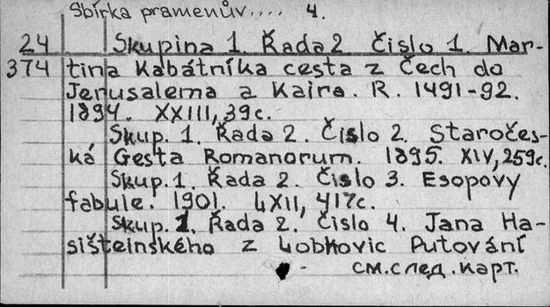 Sbírka pramenův.... 4.
24 Skupina 1. Řada 2 Čislo 1. Mar-
374 tina Kabátníka cesta z Čech do
Jerusalema a Kaira. R. 1491-92.
1894. XXIII, 39c.
Skup. 1. Řada 2. Čislo 2. Staročes-
ká Gesta Romanorum. 1895. XIV, 259c.
Skup. 1. Řada 2. Čislo 3. Esopovy
fabule. 1901. LXII, 417c.
Skup. 1. Řada 2. Čislo 4. Jana Ha-
sišteinského z Lobkovic Putování
см. след. карт.